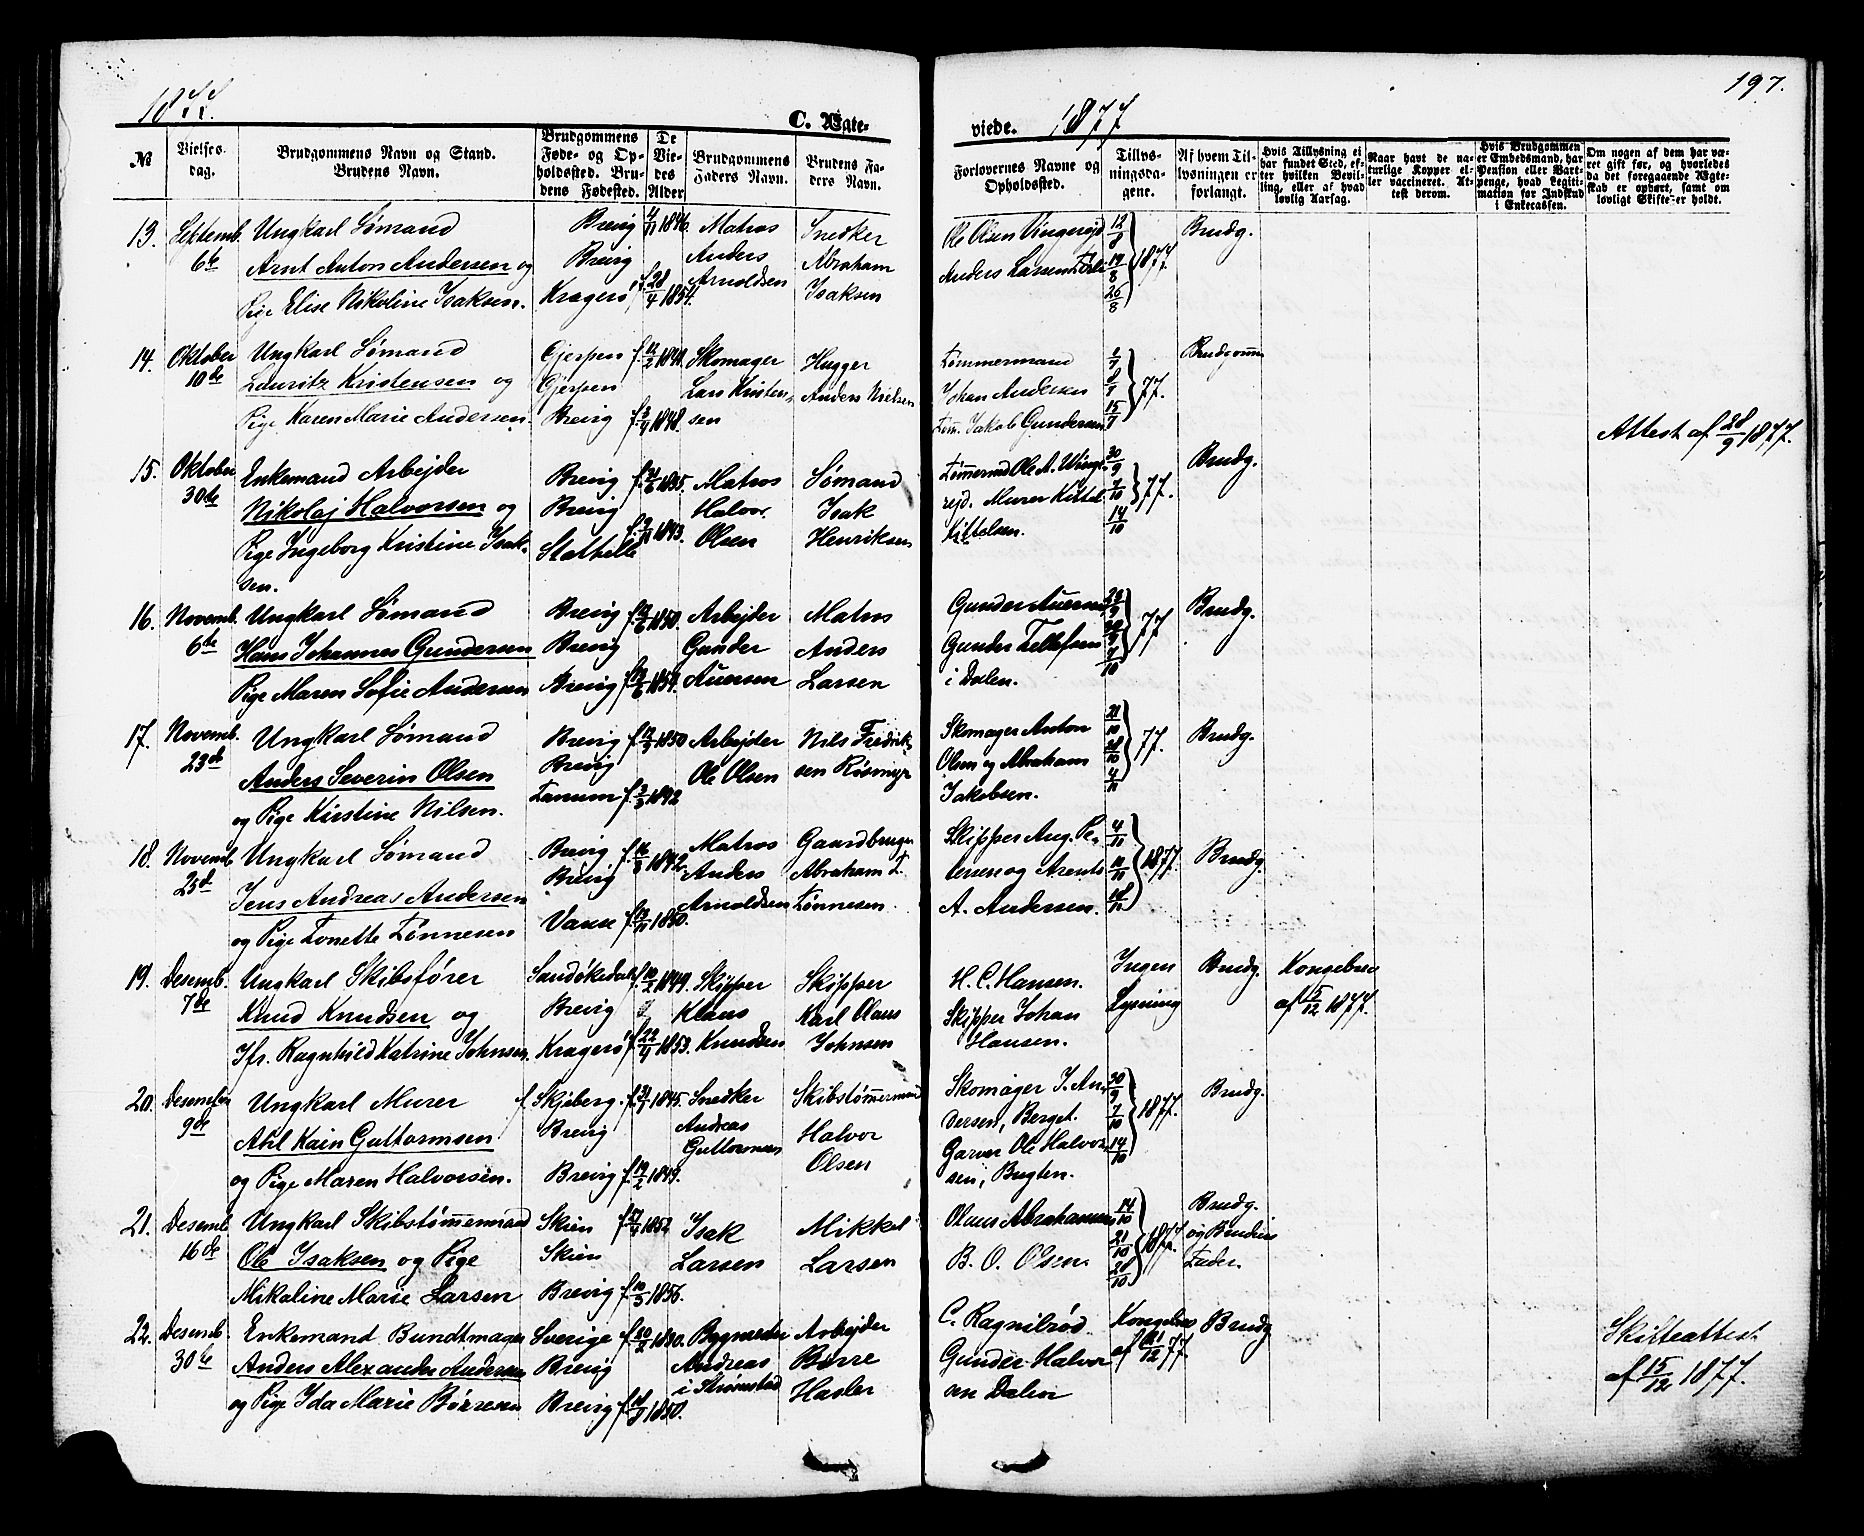 1877.
C. Ægte-
№
Vielses-
dag.
Brudgommens Navn og Stand.
Brudens Navn.
Brudgommens
Føde- og Op-
holdssted. Bru-
dens Fødested.
De
Vie-
des
Alder
Brudgommens
Faders Navn.
Brudens Fa-
ders Navn.
13. Septemb. Ungkarl Sømand Brevig 1846. Matros Snedker
6te Arnt Anton Andersen og Brevig Anders Abraham
Pige Elise Nikoline Isaksen. Kragerø f. 28/4 1854. Arnoldsen Isaksen
14. Oktober Ungkarl Sømand Gjerpen f. 11/2 1848 Skomager Hugger
10de Lauritz Kristensen og Gjerpen Lars Kristen- Anders Nielsen
Pige Karen Marie Andersen. Brevig 1848. sen
15. Oktober Enkemand Arbejder Brevig 1835. Matros Sømand
30de Nikolaj Halvorsen og Brevig Halvor Isak
Pige Ingeborg Kristine Isak- Stathelle 1843. Olsen Henriksen
sen.
16. Novemb. Ungkarl Sømand Brevig 1850. Arbejder Matros
6te Hans Johannes Gundersen Brevig Gunder Anders
Pige Maren Sofie Andersen Brevig 1854. Auensen Larsen
17. Novemb. Ungkarl Sømand Brevig 1850 Arbejder Nils Fredrik-
23de Anders Severin Olsen Brevig Ole Olsen sen Rismyr
og Pige Kirstine Nilsen. Tanum 1842
18. Novemb Ungkarl Sømand Brevig f. 16/8 1842. Matros Gaardbruger
25de Jens Andreas Andersen Brevig Anders Abraham T.
og Pige Tonette Tønnesen Vanse 1850. Arnoldsen Tønnesen
19. Desemb. Ungkarl Skibsfører Sandøkedal f. 10/2 1849. Skipper Skipper
7de Knud Knudsen og Brevig Klaus Karl Olaus
Jfr. Ragnhild Katrine Johnsen. Kragerø f. 22/4 1853. Knudsen Johnsen
20. Desember Ungkarl Murer f. Skjeberg. 1845. Snedker Skibstømmermand
9de Abel Kain Guttormsen Brevig Andreas Guttormsen Halvor
og Pige Maren Halvorsen. Brevig f. 19/2 1849. Olsen
21. Desemb Ungkarl Skibstømmermand Skien 1852 Isak Mikkel
16de Ole Isaksen og Pige Skien Larsen Larsen
Mikaline Marie Larsen Brevig f. 10/5 1856.
22. Desemb. Enkemand Bundtmager Sverige f. 20/2 1830. Bygmester Arbejder
30te Anders Alexander Andersen Brevig Andreas Børre
og Pige Ida Marie Børresen Brevig 1850. i Strømstad Hasler
197.
viede. 1877
Forlovernes Navne og
Opholdssted.
Tillys-
ningsda-
gene.
Af hvem Til-
lysningen er
forlangt.
Hvis Tillysning ei
har fundet Sted, ef-
ter hvilken Bevil-
ling, eller af hvad
lovlig Aarsag.
Naar havt de na-
turlige Kopper el-
ler vaccineret. At-
test derom.
Hvis Brudgommen
er Embedsmand, har
Pension eller Vart-
penge, hvad Legiti-
mation for Indskud
i Enkecassen.
Om nogen af dem har væ-
ret gift før, og hvorledes
da det foregaaende Ægte-
skab er ophørt, samt om
lovligt Skifte er holdt.
Ole Olsen Vingereid 12/8 Brudg.
Anders Larsen 19/8 1877
26/8
Tømmermand Brudgommen
Johan Andersen 77.
Tøm. Jakob Gundersen 15/7
Attest af 28/9 1877.
Tømmermd Ole A. Winge- 30/9 Brudg.
rejd. Murer Kittel 7/10 77.
Kittelsen. 14/10
Gunder Auensen 23/9 Brudg.
Gunder Tellefsen 30/9 77
i Dalen. 7/10
Skomager Anton 21/10 Brudg.
Olsen og Abraham 28/10 77.
Jakobsen. 4/11
Skipper Aug. Pe- 4/11
tersen og Arents 1877. Brudg.
A. Andersen. 18/11
H. C. Hansen. Ingen Brudg. Kongebrev
Skipper Johan Lysning af 5/12 1877.
Hansen.
Skomager J. An- 30/9 Brudg.
dersen, Berget. 7/10 1877.
Garver Ole Halvor- 14/10
sen, Bugten.
Olaus Abrahamsen 14/10 Brudg.
B. O. Olsen 21/10 1877 og Brudens
28/10 Fader.
C. Ragnilrød Kongebrev Brudg
Gunder Halvor- af 21/12 77.
sen Dalen
Skifteattest
af 15/12 1877.